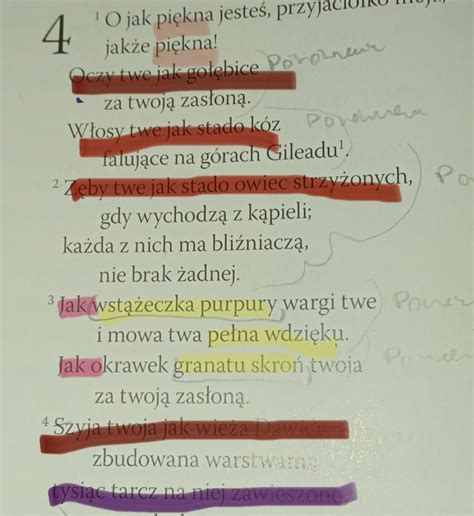 4
¹ O jak piękna jesteś, przyjaciółko moja,
jakże piękna!
Porównanie
Oczy twe jak gołębice
za twoją zasłoną.
Porównanie
Włosy twe jak stado kóz
falujące na górach Gileadu¹.
² Zęby twe jak stado owiec strzyżonych,
gdy wychodzą z kąpieli;
każda z nich ma bliźniaczą,
nie brak żadnej.
³ Jak wstążeczka purpury wargi twe
i mowa twa pełna wdzięku.
Jak okrawek granatu skroń twoja
za twoją zasłoną.
⁴ Szyja twoja jak wieża Dawida,
zbudowana warstwami,
tysiąc tarcz na niej zawieszono,